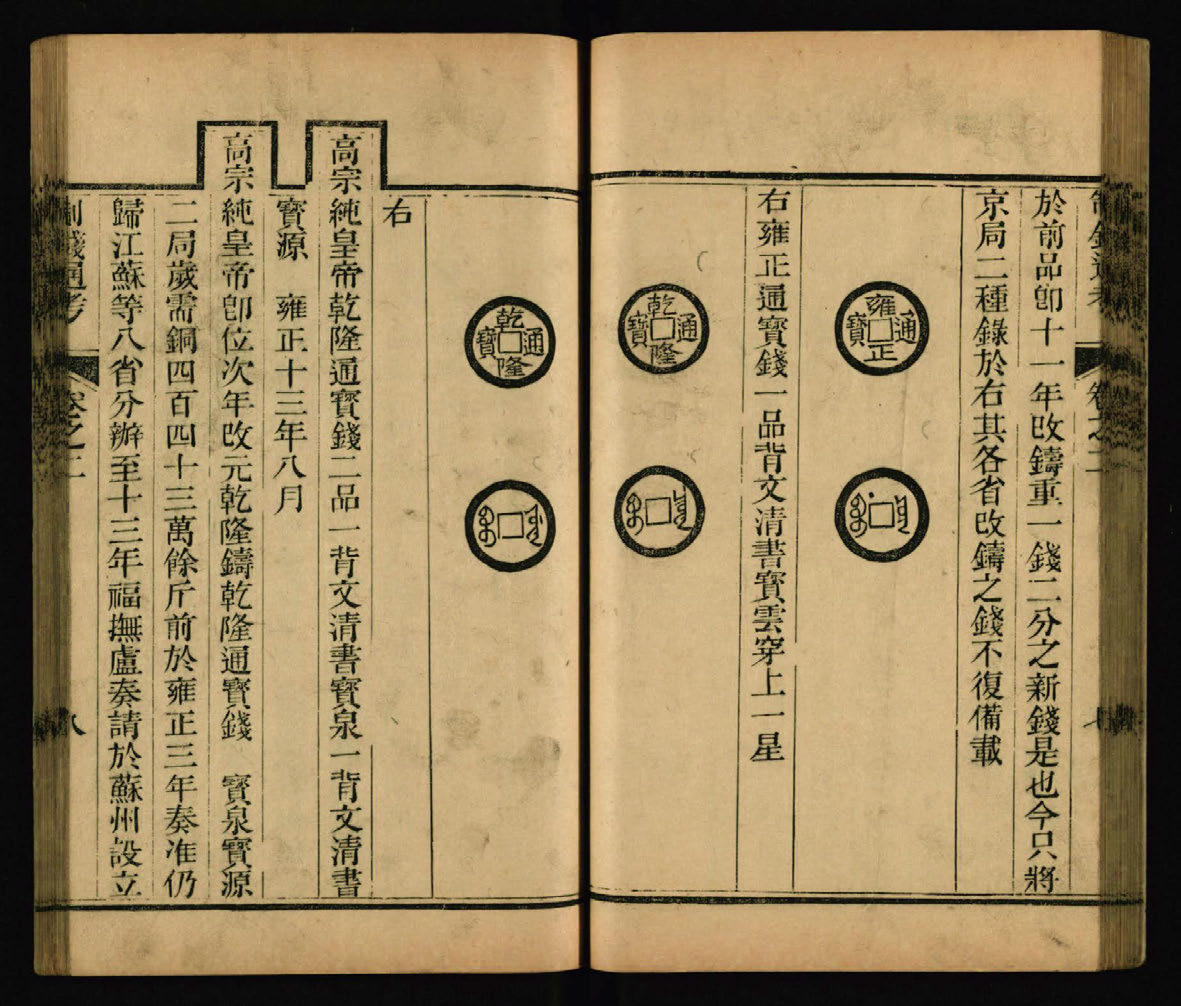 制錢通考 卷之二 七
於前品卽十一年改鑄重一錢二分之新錢是也今只將
京局二種錄於右其各省改鑄之錢不復備載
雍正通寶
右雍正通寶錢一品背文清書寶雲穿上一星
乾隆通寶
乾隆通寶
右
高宗純皇帝乾隆通寶錢二品一背文清書寶泉一背文清書
寶源 雍正十三年八月
高宗純皇帝卽位次年改元乾隆鑄乾隆通寶錢 寶泉寶源
二局歲需銅四百四十三萬餘斤前於雍正三年奏准仍
歸江蘇等八省分辦至十三年福撫盧奏請於蘇州設立
制錢通考 卷之二 八